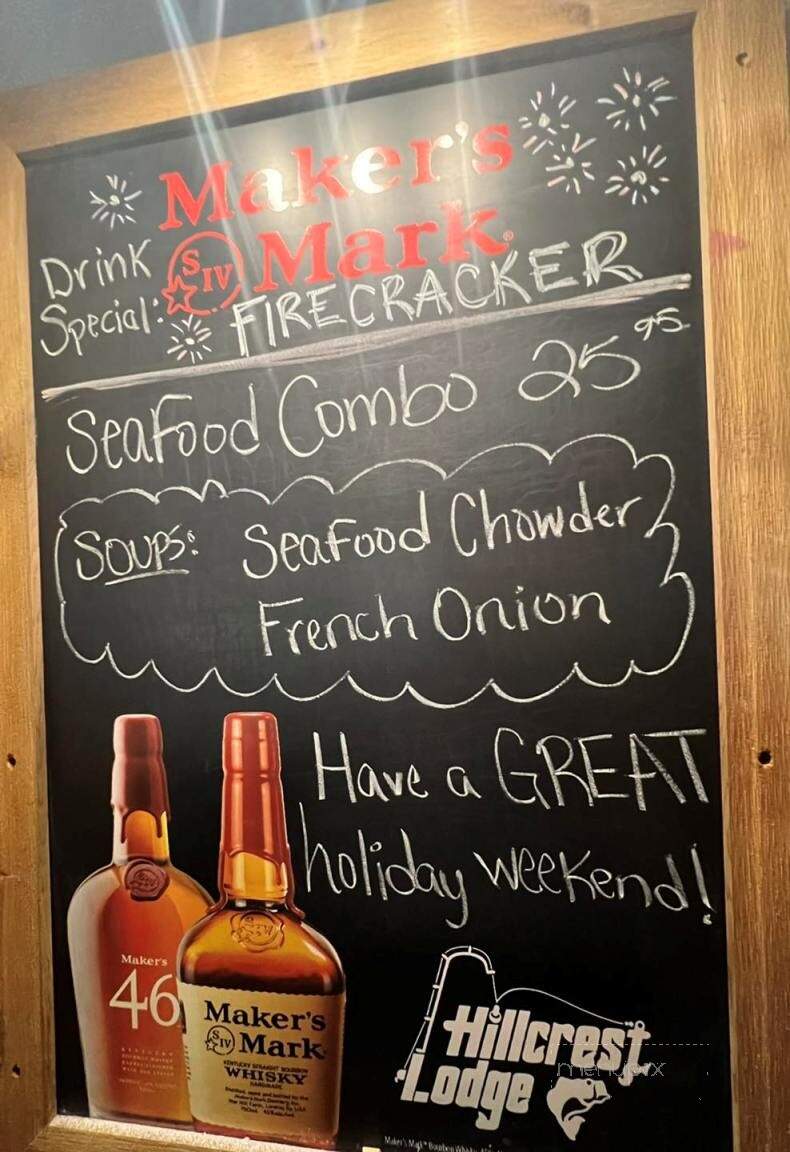 Maker's
Mark®
S IV
Drink
Special:
FIRECRACKER
Seafood Combo 25 95
Soups: Seafood Chowder
French Onion
Have a GREAT
holiday weekend!
Maker's
46
Maker's
S IV Mark
KENTUCKY STRAIGHT BOURBON
WHISKY
HANDMADE
Hillcrest
Lodge
menupix